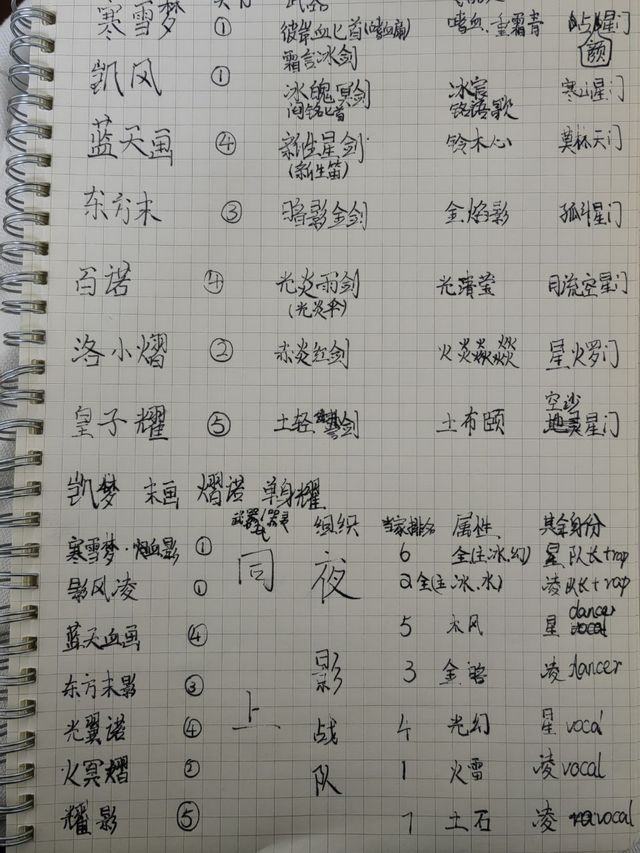 寒雪梦 ① 彼岸血匕首(嗜血扇) 嗜血.重霜青 星门
霜言冰剑 颜
凯风 ① 冰魄冥剑 冰宸 寒山星门
铭语歌
蓝天画 ④ 新生星剑 铃木心 莫林天门
(新生笛)
东方末 ③ 暗影金剑 金.焰影 孤斗星门
百诺 ④ 光炎雨剑 光清莹 月流空星门
(光炎伞)
洛小熠 ② 赤炎红剑 火炎焱燚 星火罗门
空沙
皇子耀 ⑤ 土轻剑 土布颐 地灵星门
凯梦 末画 熠诺 单身耀
武器/器灵 组织 当家排名 属性 其余身份
寒雪梦·嗜血影 ① 同 夜 6 全(主.冰.幻) 星 队长+rap
影风凌 ① 2 全(主.冰.水) 凌 队长+rap
蓝天血画 ④ 5 木风 星 dancer vocal
东方末影 ③ 影 3 金.暗 凌 dancer
光翼诺 ④ 上 战 4 光幻 星 vocal
火冥熠 ② 队 1 火雷 凌 vocal
耀影 ⑤ 7 土石 凌 vocal